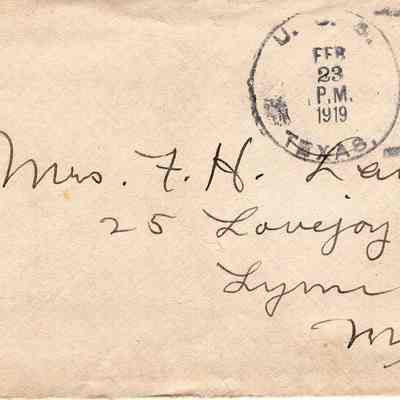 U. S. S.
FEB
23
P.M.
1919
TEXAS.
Mrs. F. H.
25 Lovejoy
Lynn